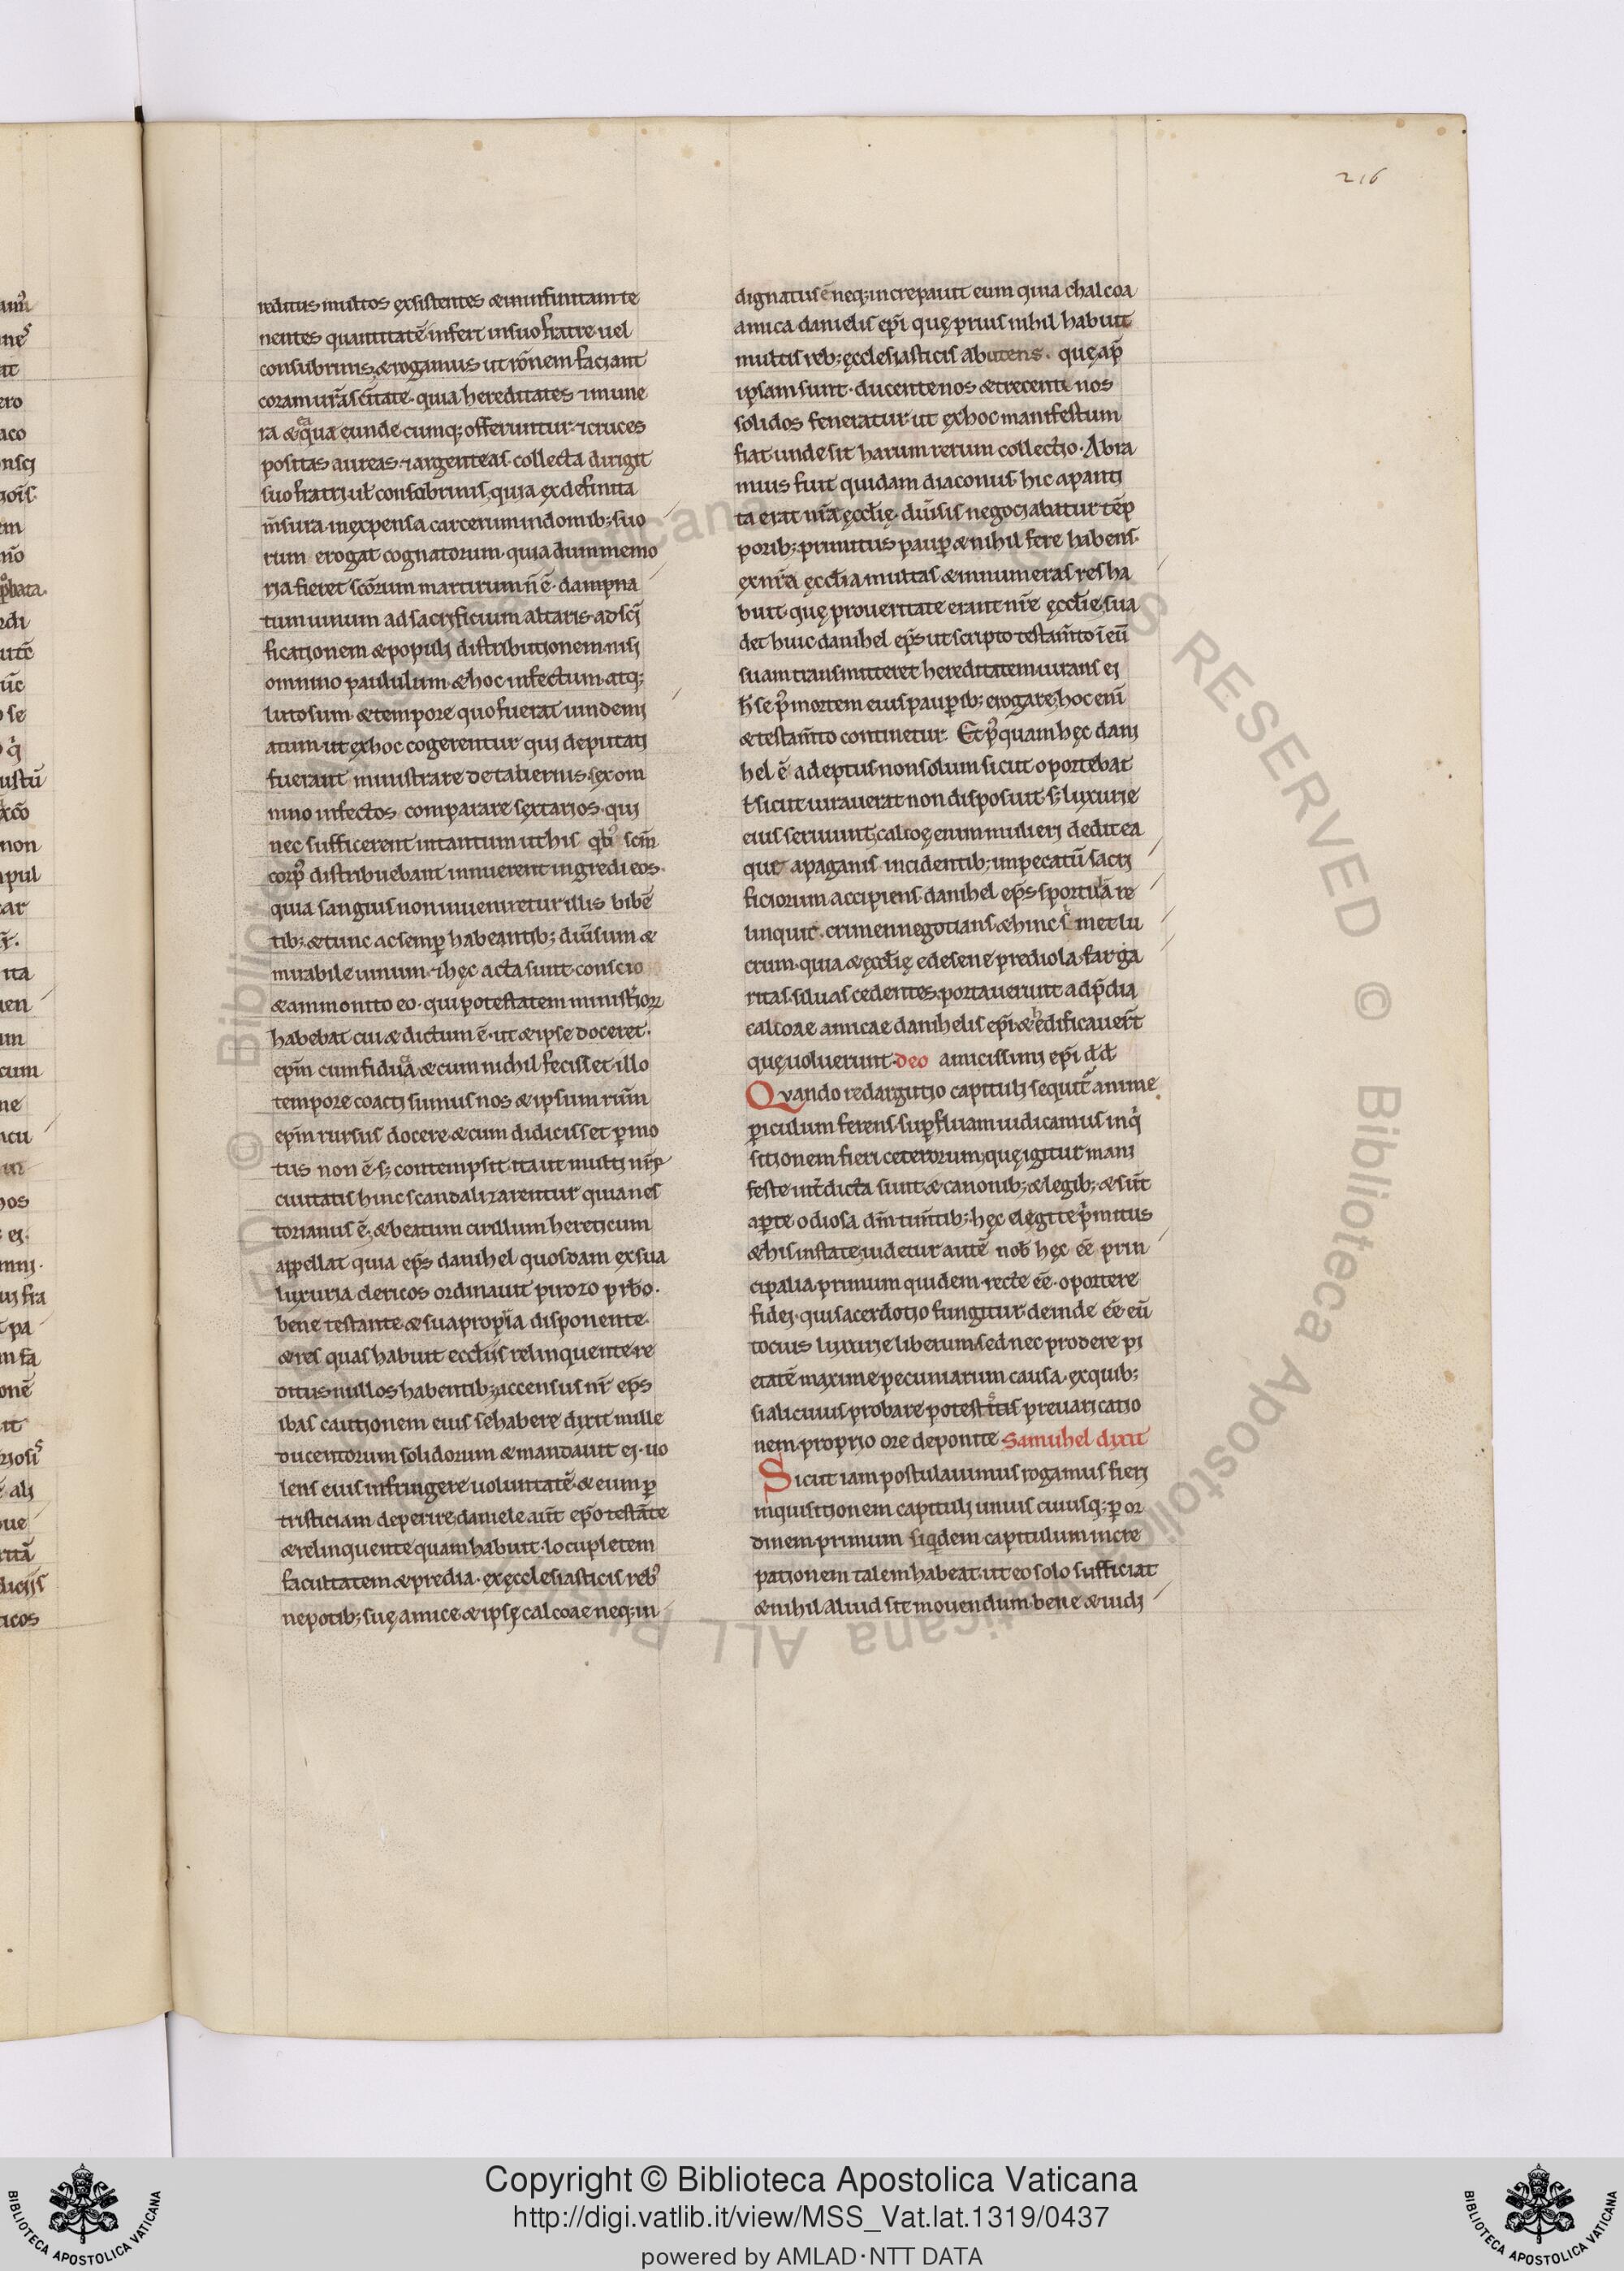 216
reditus multos existentes & in infinitam te
nentes quantitatē infert in suo fratre uel
consubrinis, & rogamus ut rōnem faciant
coram ur̄a sc̄itate. quia hereditates & mune
ra & qua eunde cumq; offeruntur & cruces
positas aureas & argenteas collecta dirigit
suo fratri ul̄ consobrinis, quia ex definita
m̄sura in expensa carcerum in domib; suo
rum erogat cognatorum. quia dum memo
ria fieret sc̄orum martirum n̄ ē. dampna
tum uinum ad sacrificium altaris ad sc̄i
ficationem & populi distributionem nisi
omnino paululum & hoc infectum atq;
lutosum & tempore quo fuerat uindemi
atum ut ex hoc cogerentur qui deputati
fuerant ministrare de tabernis sex om
nino infectos comparare sextarios. qui
nec sufficerent in tantum ut his qb; sc̄m
corp̄ distribuebant innuerent ingredi eos.
quia sanguis non inueniretur illis bibē
tib; & tunc ac semp̄ habeantib; diūsum &
mirabile uinum & hęc acta sunt conscio
& ammonito eo. qui potestatem ministrior
habebat cui & dictum ē. ut & ipse doceret.
ep̄m cum fidua & cum nichil fecisset illo
tempore coacti sumus nos & ipsum rūm
ep̄m rursus docere & cum didicisset p̄mo
tus non ē s; contempsit ita ut multi nr̄e
ciuitatis hinc scandalizarentur quia nes
torianus ē, & beatum cirillum hereticum
appellat quia ep̄s danihel quosdam ex sua
luxuria clericos ordinauit pirozo prb̄o.
bene testante & sua propria disponente.
& res quas habuit eccl̄iis relinquente re
ditus nullos habentib; accensus nr̄ ep̄s
ibas cautionem eius se habere dixit mille
ducentorum solidorum & mandauit ei. uo
lens eius infringere uoluntatē. & eum p̄
tristiciam deperire, daniele aūt ep̄o testāte
& relinquente quam habuit. locupletem
facultatem & predia. ex ęcclesiasticis reb;
nepotib; suę amice & ipsę calcoae neq; in
dignatus ē neq; increpauit eum quia chalcoa
amica danielis ep̄i quę prius nihil habuit
multis reb; ęcclesiasticis abutens. quę ap̄
ipsam sunt. ducentenos & trecente nos
solidos feneratur ut ex hoc manifestum
fiat unde sit harum rerum collectio. Abra
mius fuit quidam diaconus hic apanti
ta erat nr̄a ęccl̄ię. diūsis negociabatur tēp
porib; primitus paup̄ & nihil fere habens.
ex nr̄a ęccl̄ia multas & innumeras res ha
buit. quę pro ueritate erant nr̄e ęccl̄ie, sua
det huic danihel ep̄s ut scripto testam̄to ī eū
suam transmitteret hereditatem iurans ei
h̄ se p̄ mortem eius paup̄ib; erogare, hoc eni
& testam̄to continetur. Et p̄quam hęc dani
hel ē adeptus non solum sicut oportebat
l̄ sicut iurauerat non disposuit. s; luxurie
eius seruiunt, calcoę enim mulieri dedit ea
que a paganis incidentib; in pecatū sacri
ficiorum accipiens danihel ep̄s sportula re
linquit. crimen negotians & hinc s met lu
crum. quia & ęccl̄ię edesene prediola farga
ritas siluas cedentes portauerunt ad p̄dia
calcoae amicae danihelis ep̄i & edificauer̄t
quę uoluerunt. deo amicissimi ep̄i d̄d̄
Quando redargutio capituli sequit̄ anime
periculum ferens. sup̄fluam iudicamus inq
sitionem fieri ceterorum, quę igitur mani
feste int̄dicta sunt & canonib; & legib; & sūt
ap̄te odiosa dm̄ tim̄tib; hęc elegite p̄mitus
& his instate, uidetur autē nob̄ hęc ēē prin
cipalia. primum quidem recte ēē. oportere
fidei. qui sacerdotio fungitur. deinde ēē eū
tocius luxurie liberum. sed nec prodere pi
etatē maxime pecuniarum causa. ex quib;
si alicuius probare potestitis preuaricatio
nem. proprio ore deponite Samuhel dixit
Sicut iam postulauimus rogamus fieri
inquisitionem capituli unius cuiusq; p̄ or
dinem. primum siqdem capitulum incre
pationem talem habeat. ut eo solo sufficiat
& nihil aliud sit mouendum. bene & iudi
Copyright © Biblioteca Apostolica Vaticana
http://digi.vatlib.it/view/MSS_Vat.lat.1319/0437
powered by AMLAD·NTT DATA